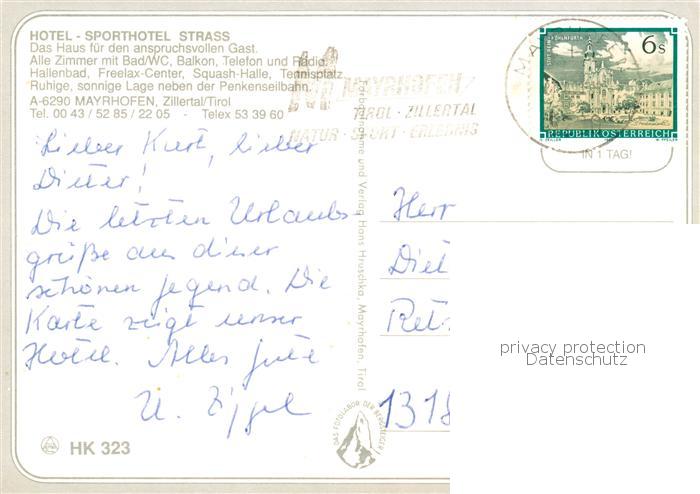 HOTEL - SPORTHOTEL STRASS
Das Haus für den anspruchsvollen Gast.
Alle Zimmer mit Bad/WC, Balkon, Telefon und Radio.
Hallenbad, Freelax-Center, Squash-Halle, Tennisplatz.
Ruhige, sonnige Lage neben der Penkenseilbahn.
A-6290 MAYRHOFEN, Zillertal/Tirol
Tel. 00 43 / 52 85 / 22 05 - Telex 53 39 60
MAYRHOFEN
TIROL · ZILLERTAL
NATUR · SPORT · ERLEBNIS
6 s
REPUBLIK ÖSTERREICH
IN 1 TAG!
Lieber Kurt, lieber
Dieter!
Die letzten Urlaubs-
grüße aus dieser
schönen Gegend. Die
Karte zeigt unser
Hotel. Alles Gute
Herr
Diet
1318
und Verlag Hans Hruschka, Mayrhofen, Tirol
DAS FOTOLABOR DER BERGSTEIGER
HK 323
privacy protection
Datenschutz